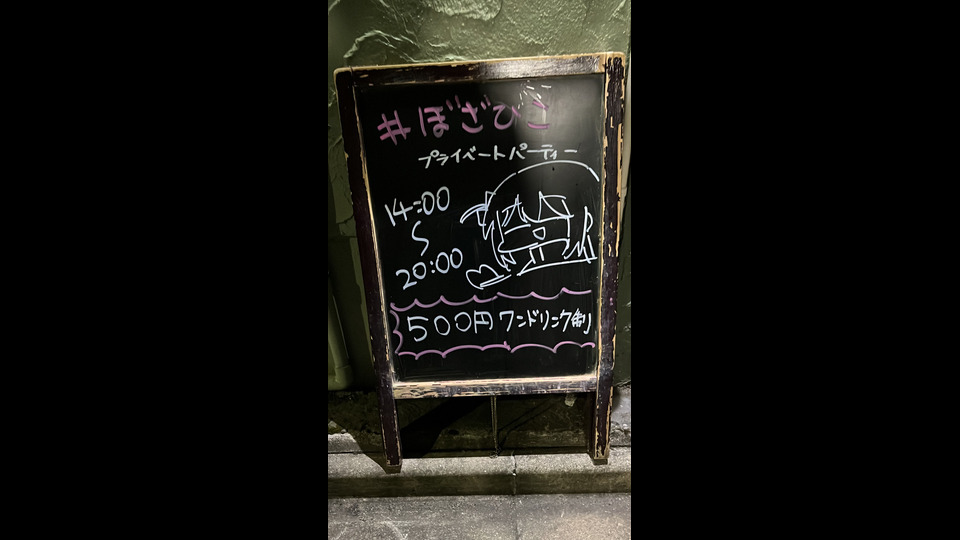 #ぼざひこ
プライベートパーティー
14:00
〜
20:00
500円 ワンドリンク制